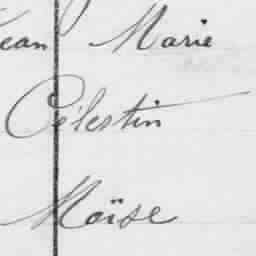 Jean Marie
Célestin
Moïse